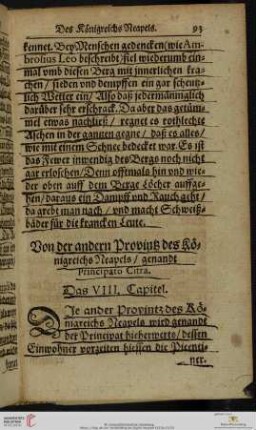 Des Königreichs Neapels. 93
kennet. Bey Menschen gedencken (wie Am-
brosius Leo beschreibt) fiel wiederumb ein-
mal vmb diesen Berg mit innerlichen kra-
chen / sieden vnd dempffen ein gar scheutz-
lich Wetter ein / Also daß jedermänniglich
darüber sehr erschrack. Da aber das getüm-
mel etwas nachließ / regnet es rothlechte
Aschen in der gantzen gegne / daß es alles /
wie mit einem Schnee bedecket war. Es ist
das Fewer inwendig des Bergs noch nicht
gar erloschen / Denn offtmals hin vnd wie-
der oben auff dem Berge Löcher auffge-
hen / daraus ein Dampff vnd Rauch geht /
da grebt man nach / vnd macht Schweiß-
bäder für die krancken Leute.
Von der andern Provintz des Kö-
nigreichs Neapels / genandt
Principato Citra.
Das VIII. Capitel.
Die ander Provintz des Kö-
nigreichs Neapels wird genandt
der Principat hierwerts / dessen
Einwohner vorzeiten hiessen die Picenti-
ner.